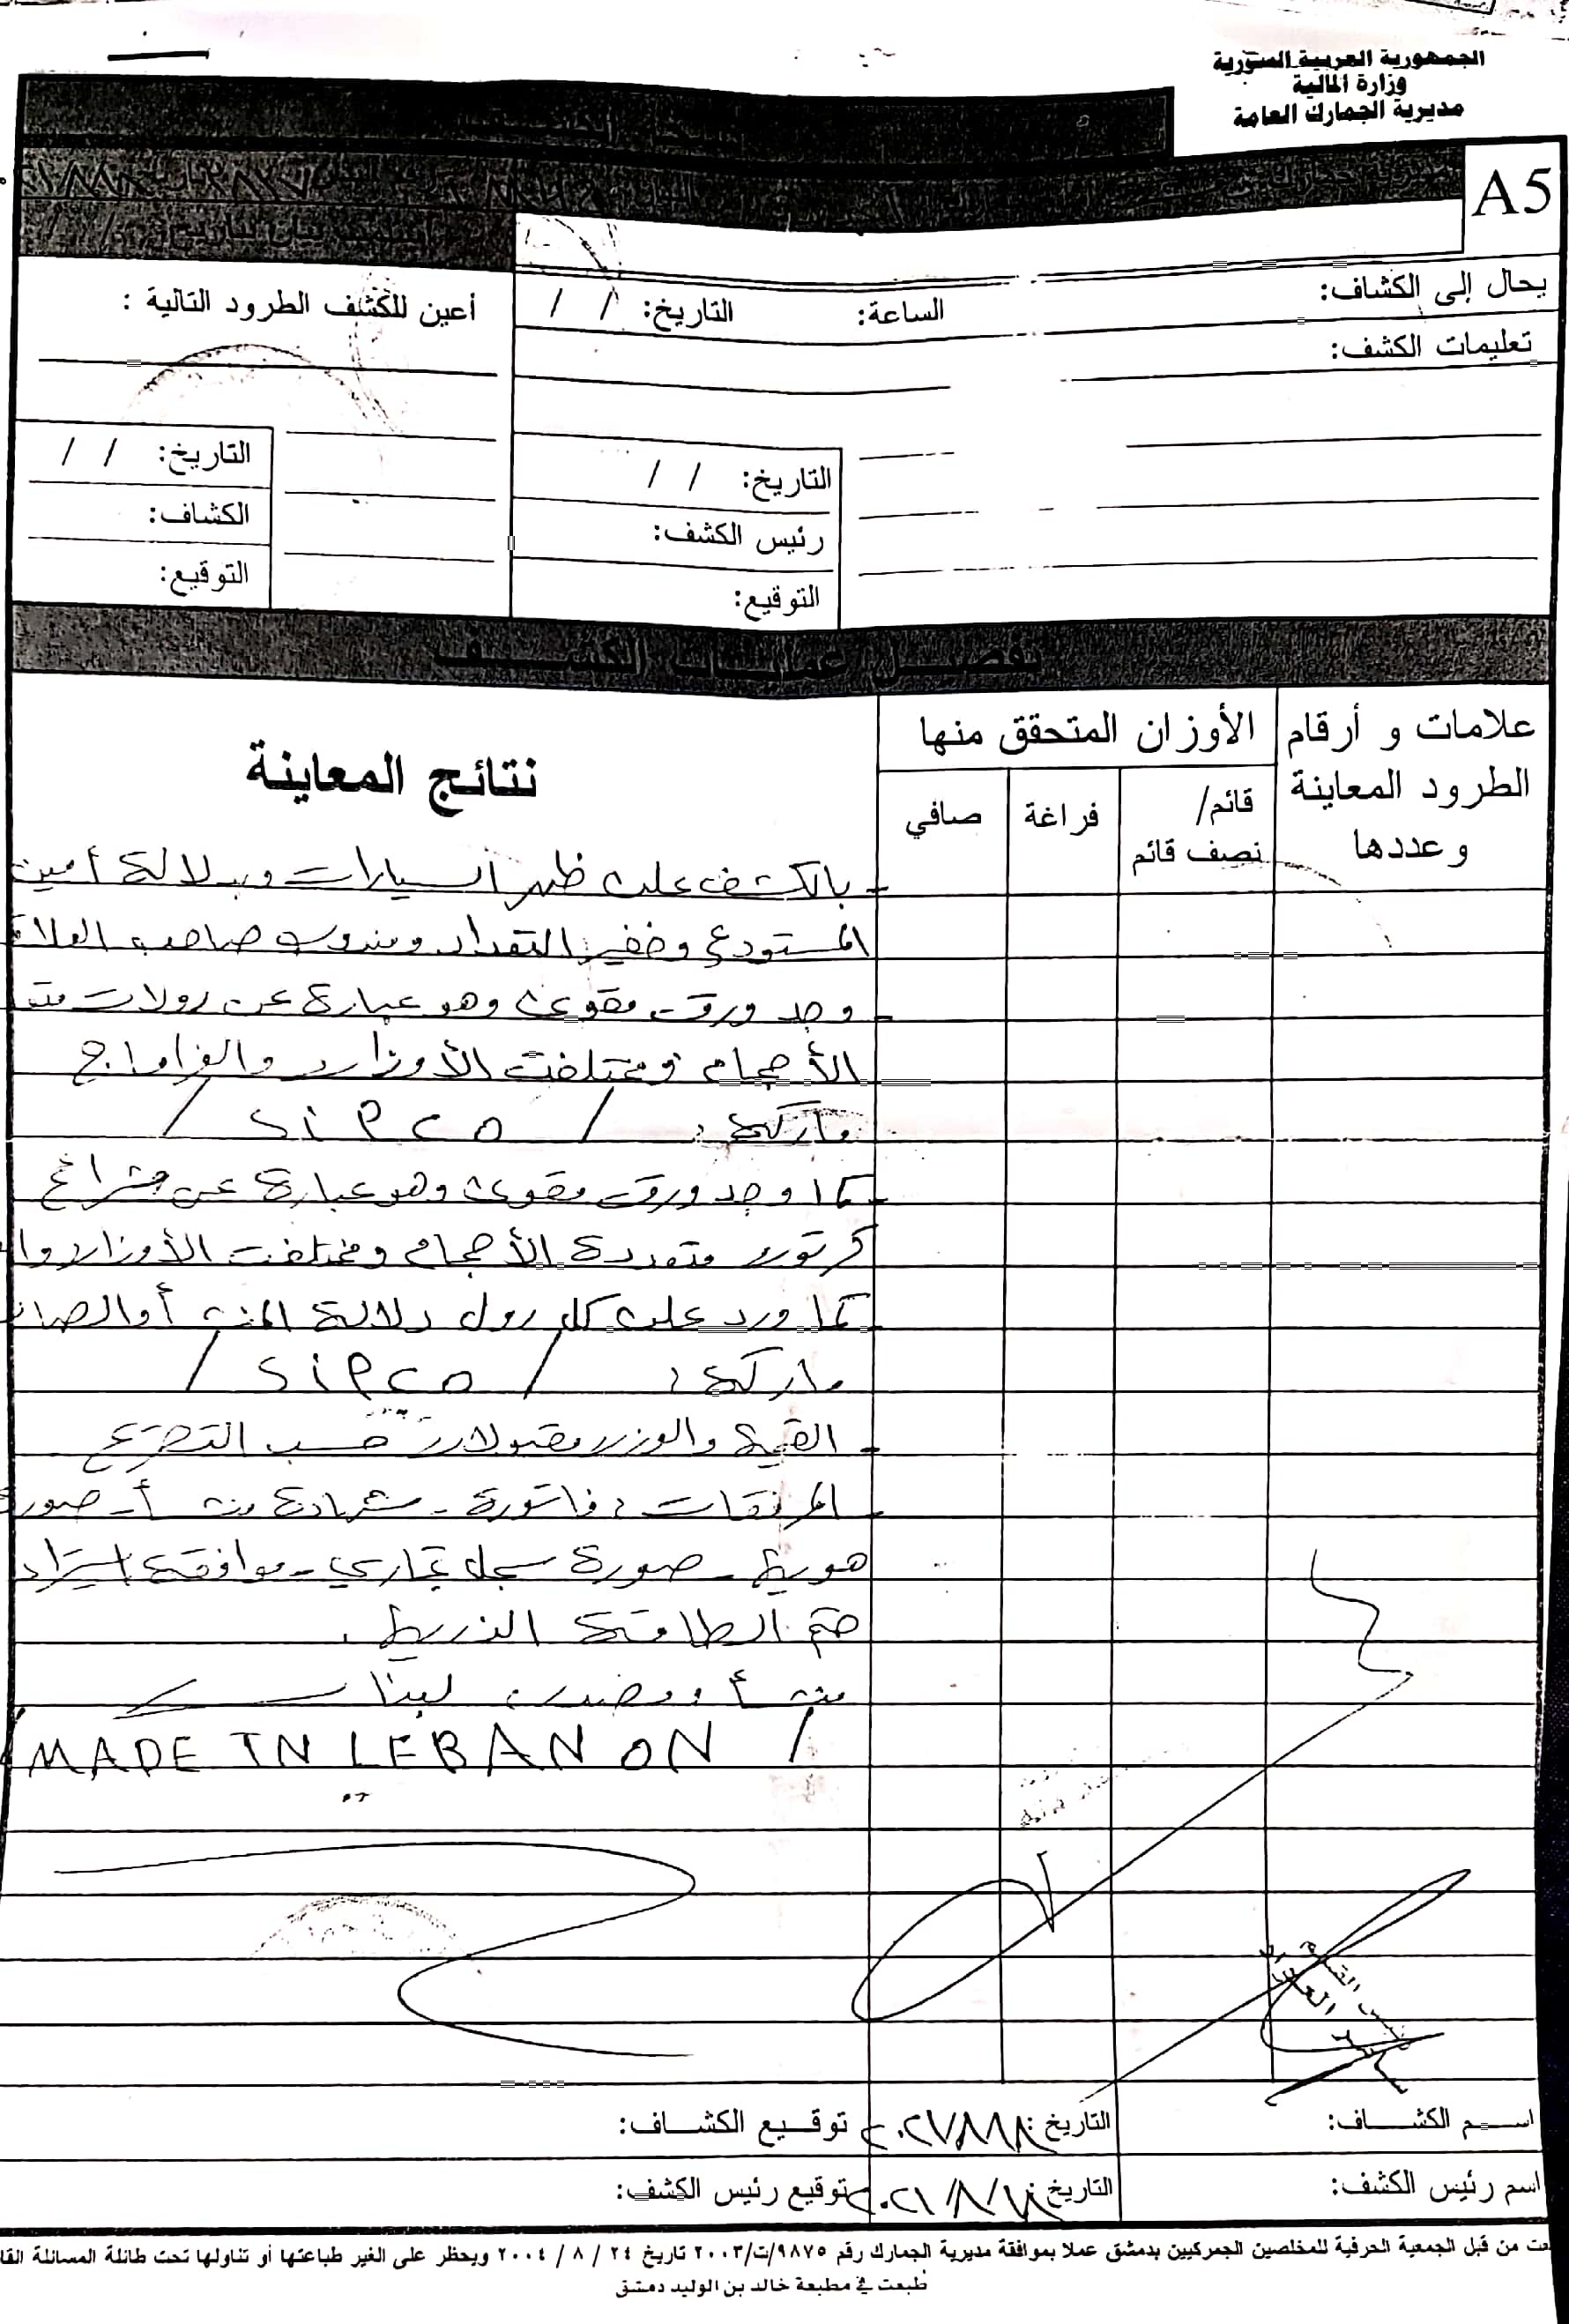 الجمهورية العربية السورية
وزارة المالية
مديرية الجمارك العامة
A5
يحال إلى الكشاف:
الساعة:
التاريخ: / /
أعين للكشف الطرود التالية :
تعليمات الكشف:
التاريخ: / /
رئيس الكشف:
التوقيع:
التاريخ: / /
الكشاف:
التوقيع:
تفصيل عمليات الكشف
علامات و أرقام الطرود المعاينة وعددها
الأوزان المتحقق منها
قائم/ نصف قائم
فراغة
صافي
نتائج المعاينة
- بالكشف على ظهر السيارات وبدلالة أمين
المستودع وخفير التعداد ومندوب صاحب العلاقة
- وجد ورق مقوى وهو عبارة عن رولات
الأحجام ومختلفة الأوزان
ماركة: / sipco /
- كما وجد ورق مقوى وهو عبارة عن
كرتون متعددة الأحجام ومختلفة الأوزان
- كما ورد على كل رول دلالة المنشأ
ماركة: / sipco /
- القيمة والوزن مقبولان حسب التصريح
- المرفقات: فاتورة - شهادة منشأ - صورة
هوية - صورة سجل تجاري - موافقة استيراد
ختم الطاقة الذرية.
منشأ ومصدر لبنان
/ MADE IN LEBANON /
اسم الكشاف:
التاريخ:
توقيع الكشاف:
اسم رئيس الكشف:
التاريخ: ٢٠٢١/٨/١٨
توقيع رئيس الكشف:
من قبل الجمعية الحرفية للمخلصين الجمركيين بدمشق عملا بموافقة مديرية الجمارك رقم ٩٨٧٥/ت/٢٠٠٣ تاريخ ٢٤ / ٨ / ٢٠٠٤ ويحظر على الغير طباعتها أو تناولها تحت طائلة المسائلة
طبعت في مطبعة خالد بن الوليد دمشق